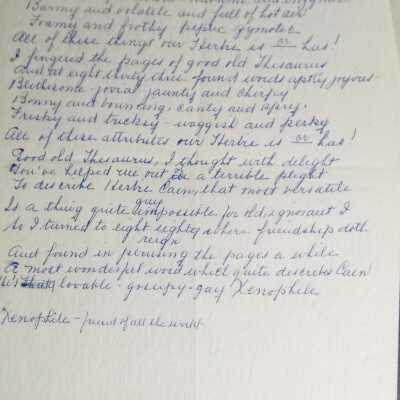 and
Barmy and volatile and full of hot air
Foamy and frothy - peptic zymotic
All of these things our Herbie is or has!
I fingered the pages of good old Thesaurus
And at eight thirty three found words aptly joyous
Blithesome - jovial jaunty and chirpy
Bonny and bouncing, canty and
Frisky and bricksy - waggish and perky
All of these attributes our Herbie is or has!
Good old Thesaurus, I thought with delight
You've helped me out a terrible plight
To describe Herbie Caen, that most versatile guy
Is a thing quite impossible for old ignorant I
So I turned to eight eighty eight where friendship doth reign
And found in perusing the pages a while
A most wonderful word which quite describes Caen
lovable - groupy - gay Xenophile
Xenophile - friend of all the world